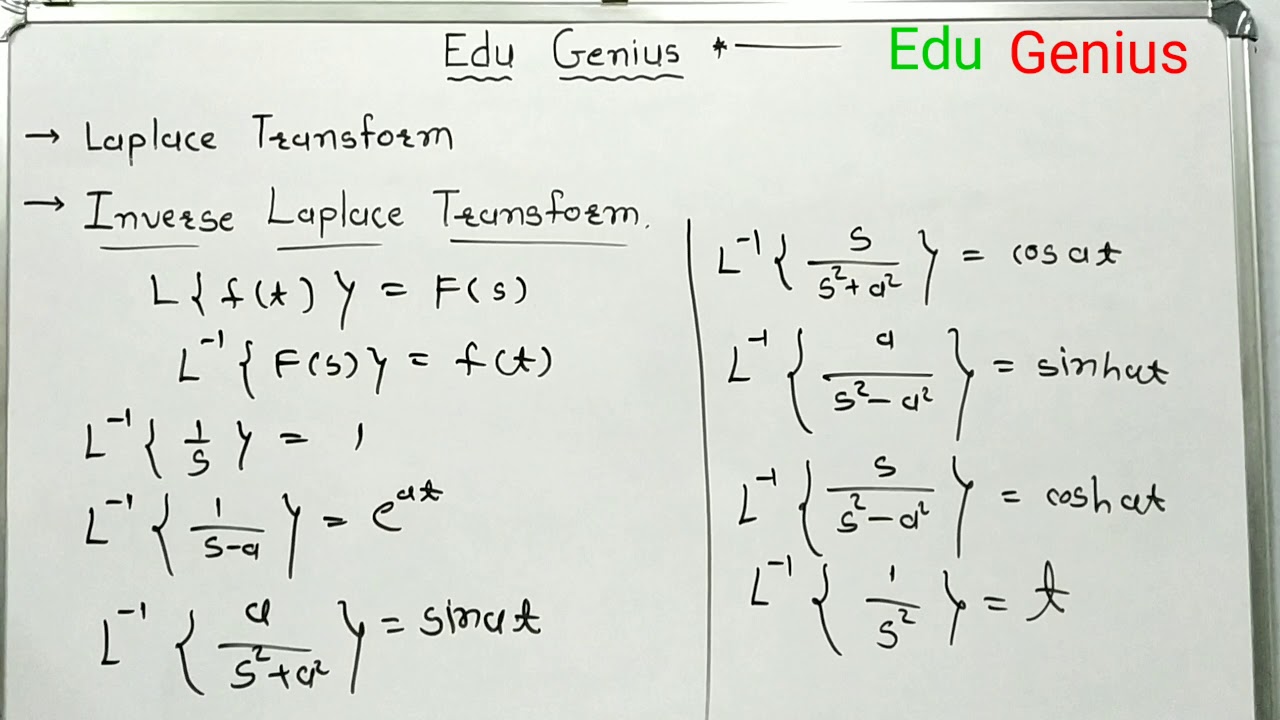 Edu Genius *——
Edu Genius
→ Laplace Transform
→ Inverse Laplace Transform.
L{f(t)} = F(s)
L⁻¹{F(s)} = f(t)
L⁻¹{1/s} = 1
L⁻¹{1/(s-a)} = e^{at}
L⁻¹{a/(s²+a²)} = sinat
L⁻¹{s/(s²+a²)} = cosat
L⁻¹{a/(s²-a²)} = sinhat
L⁻¹{s/(s²-a²)} = coshat
L⁻¹{1/s²} = t